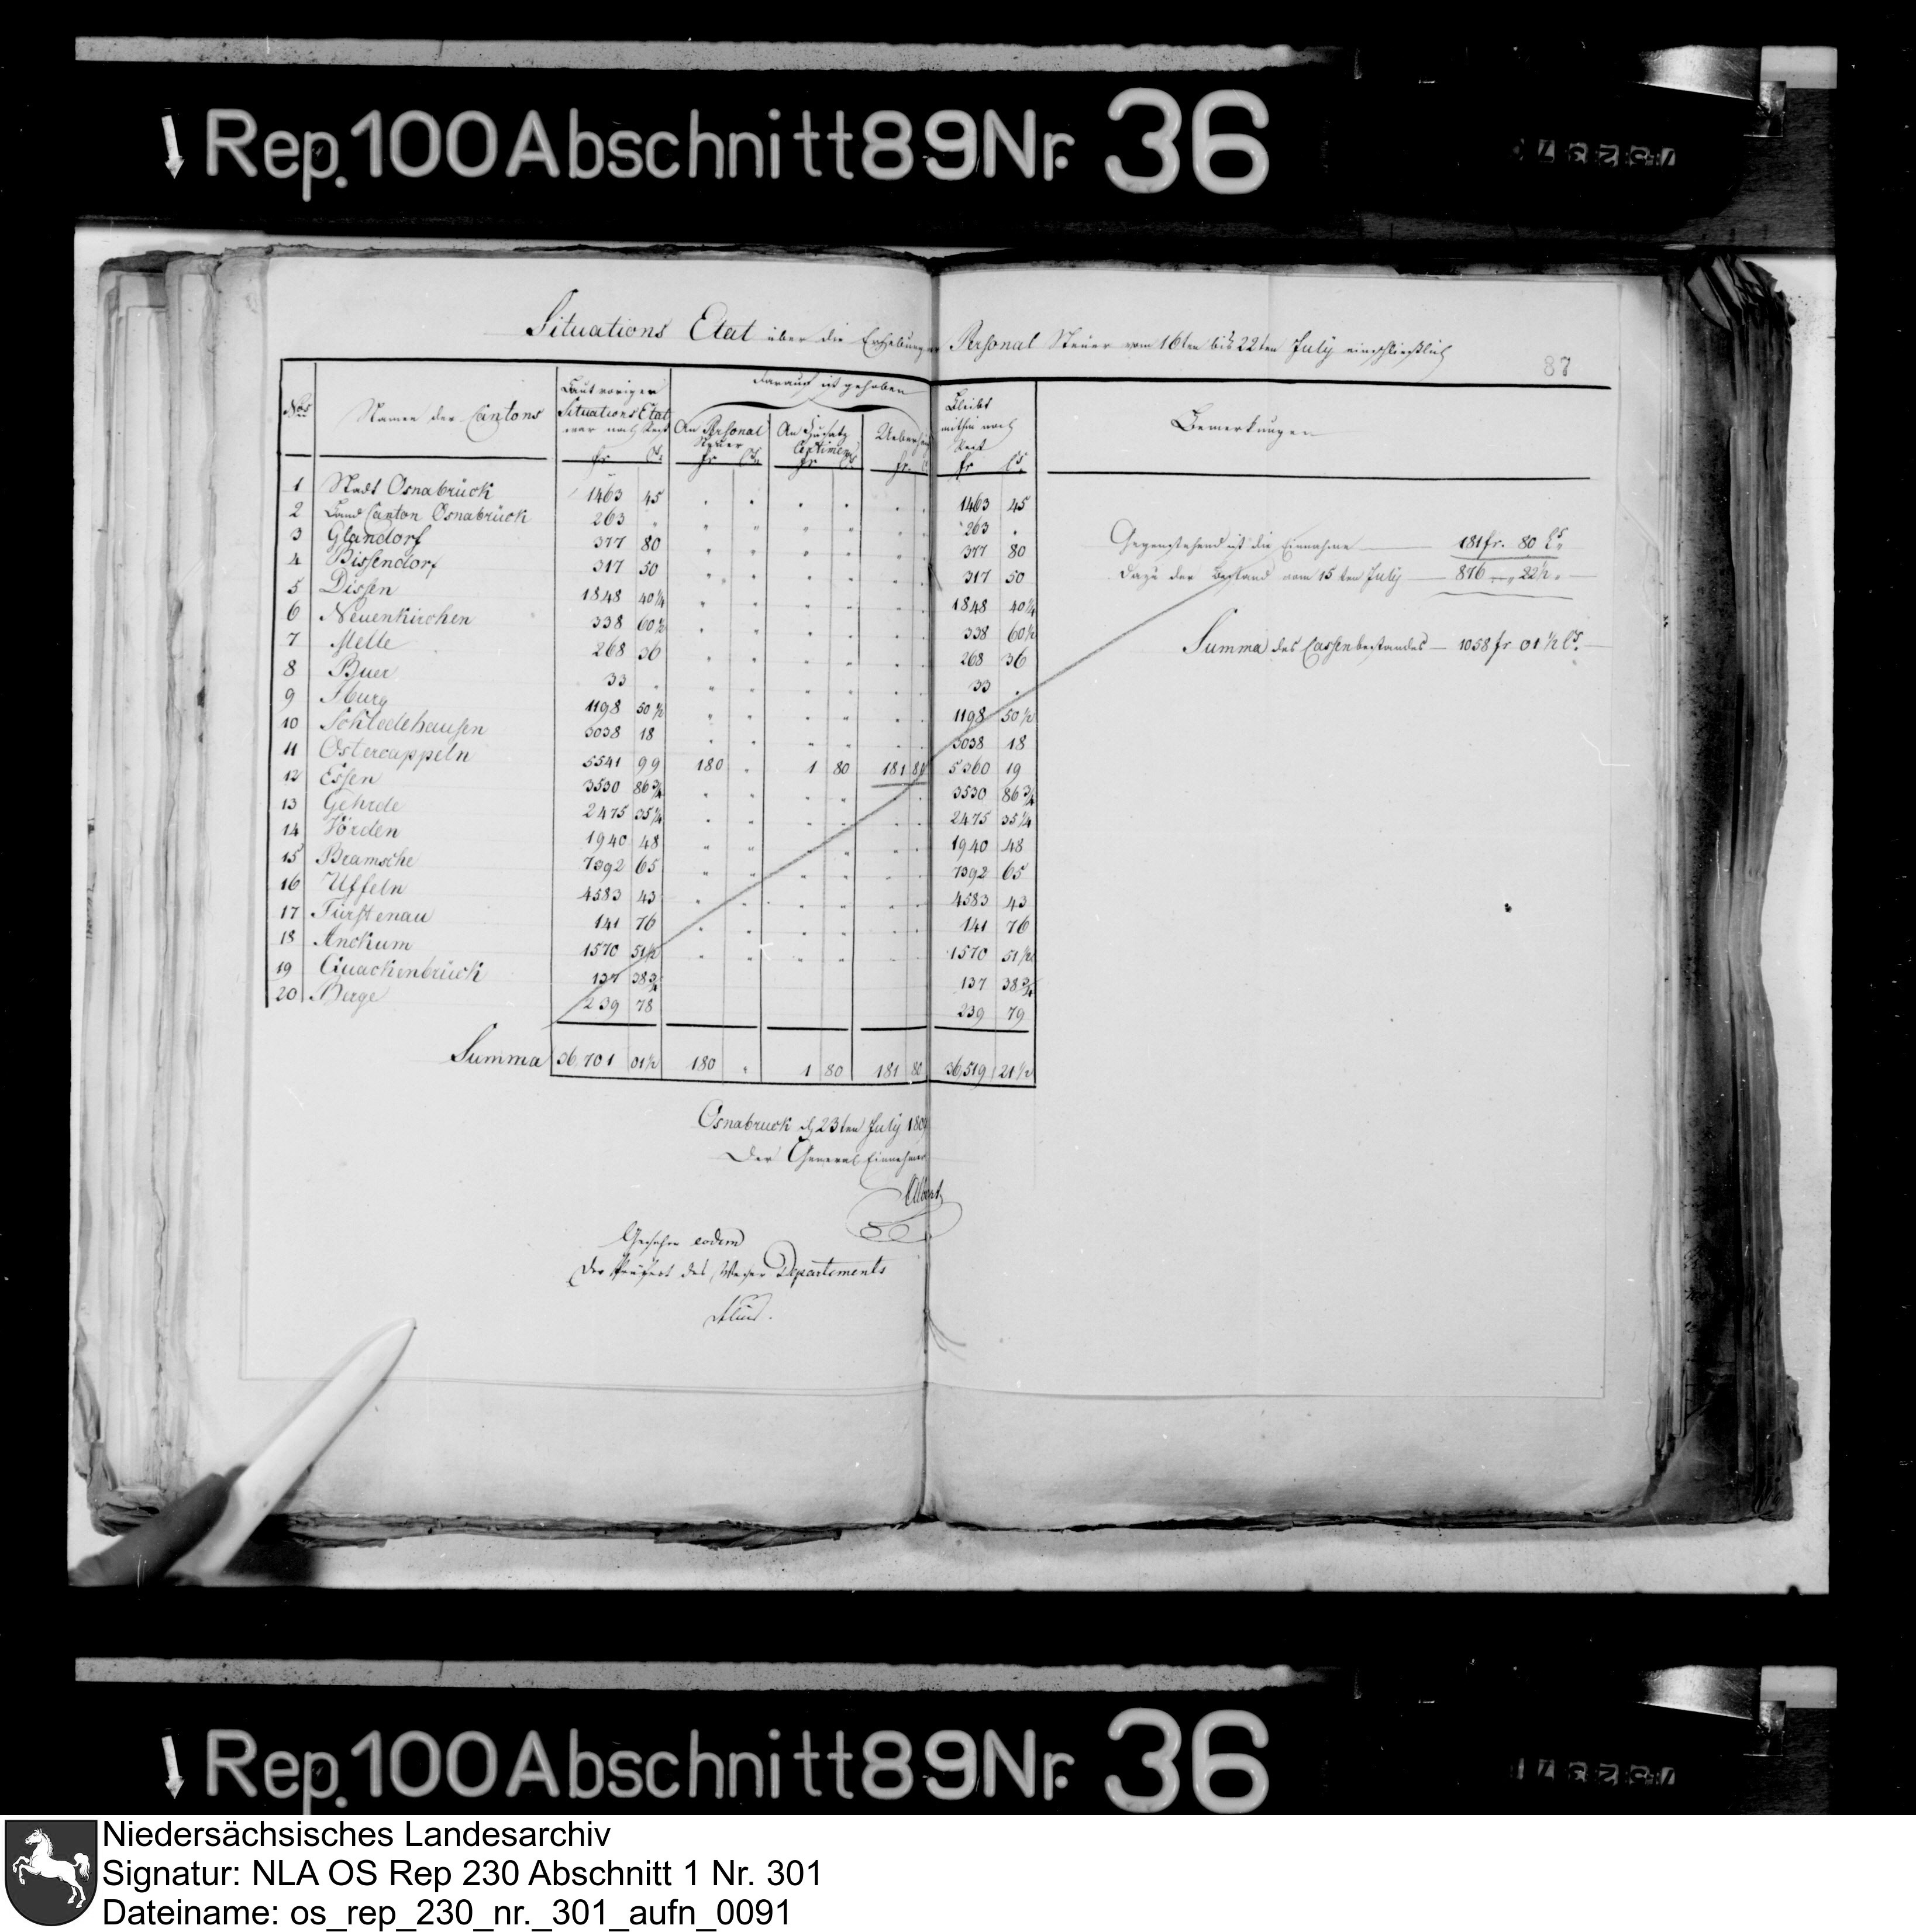 Rep. 100 Abschnitt 89 Nr. 36
Situations Etat über die Erhebung der Personal Steuer vom 16ten bis 22ten July einschließlich
87
Nos Namen der Cantons Laut voriger Situations Etat war noch Rest darauf ist gehoben Bleibt mithin noch Rest Bemerkungen
An Personal Steuer An Zusatz Centimen Ueberhaupt
fr Cs fr Cs fr Cs fr. fr Cs
1 Stadt Osnabrück 1463 45 1463 45
2 Land Canton Osnabrück 263 " 263 "
3 Glandorf 377 80 377 80
4 Bissendorf 317 50 317 50
5 Dissen 1848 40¼ 1848 40¼
6 Neuenkirchen 338 60½ 338 60½
7 Melle 268 36 268 36
8 Buer 33 . 33 .
9 Iburg 1198 50½ 1198 50½
10 Schledehausen 3038 18 3038 18
11 Ostercappeln 5541 99 180 " 1 80 181 80 5360 19
12 Essen 3530 86¾ 3530 86¾
13 Gehrde 2475 35¼ 2475 35¼
14 Vörden 1940 48 1940 48
15 Bramsche 7392 65 7392 65
16 Uffeln 4583 43 4583 43
17 Fürstenau 141 76 141 76
18 Anckum 1570 51½ 1570 51½
19 Quackenbrück 137 38¾ 137 38¾
20 Berge 239 78 239 79
Summa 36,701 01½ 180 " 1 80 181 80 36,519 21½
Gegenstehend ist die Einnahme — 181 fr. 80 Cs
Dazu der Bestand vom 15ten July — 876 — " 22½ "
Summa des Cassenbestandes — 1058 fr 01½ Cs.
Osnabruck d 23ten July 1809
Der General Einnehmer
Gesehen eodem
Der Präfect des Weser Departements
Rep. 100 Abschnitt 89 Nr. 36
Niedersächsisches Landesarchiv
Signatur: NLA OS Rep 230 Abschnitt 1 Nr. 301
Dateiname: os_rep_230_nr._301_aufn_0091